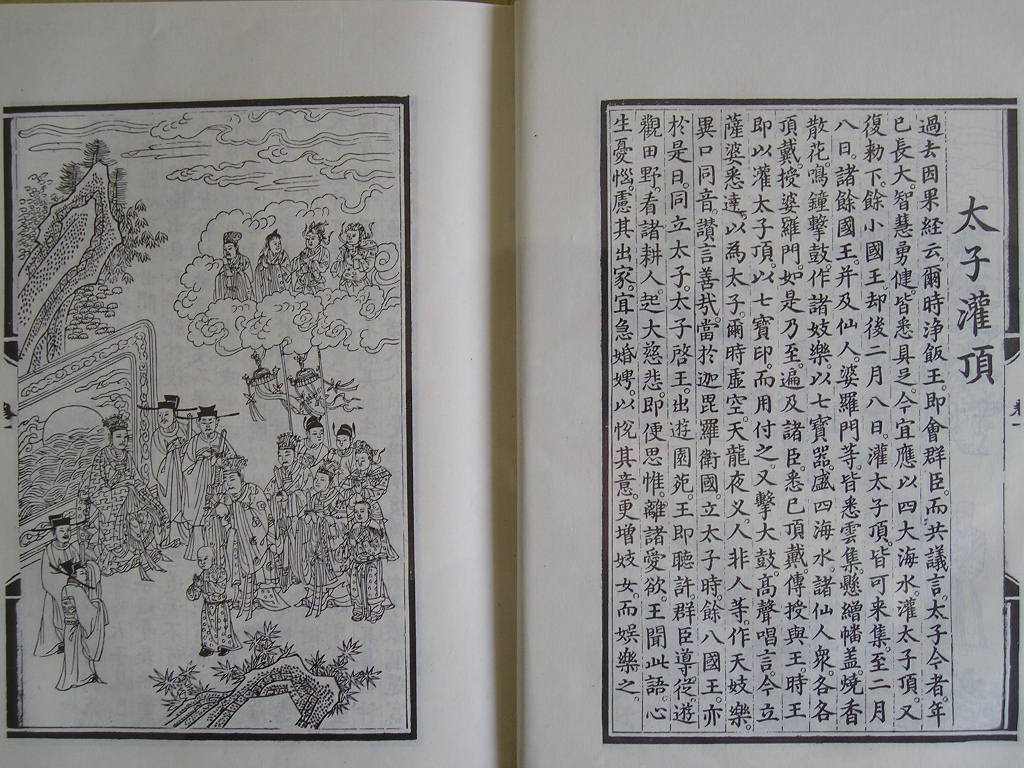 太子灌頂
過去因果經云。爾時淨飯王。即會群臣。而共議言。太子今者。年
已長大。智慧勇健。皆悉具足。今宜應以四大海水。灌太子頂。又
復勑下。餘小國王。却後二月八日。灌太子頂。皆可來集。至二月
八日。諸餘國王。并及仙人。婆羅門等。皆悉雲集。懸繒幡蓋。燒香
散花。鳴鐘擊鼓。作諸妓樂。以七寶器。盛四海水。諸仙人衆。各各
頂戴。授婆羅門。如是乃至。遍及諸臣。悉已頂戴。傳授與王。時王
即以灌太子頂。以七寶印。而用付之。又擊大鼓。高聲唱言。今立
薩婆悉達。以為太子。爾時虛空。天龍夜叉。人非人等。作天妓樂。
異口同音。讚言善哉。當於迦毘羅衛國。立太子時。餘八國王。亦
於是日。同立太子。太子啓王。出遊園苑。王即聽許。群臣導從。遊
觀田野。看諸耕人。起大慈悲。即便思惟。離諸愛欲。王聞此語。心
生憂惱。慮其出家。宜急婚娉。以悅其意。更增妓女。而娛樂之。
卷一